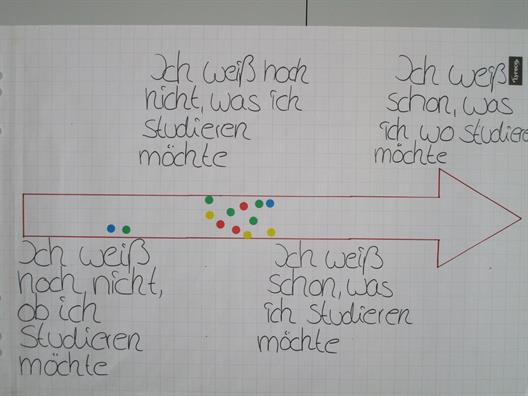 Ich weiß noch
nicht, was ich
studieren
möchte
Ich weiß
schon, was
ich wo studiere
möchte
Ich weiß
noch nicht,
ob ich
Studieren
möchte
Ich weiß
schon, was
ich studieren
möchte